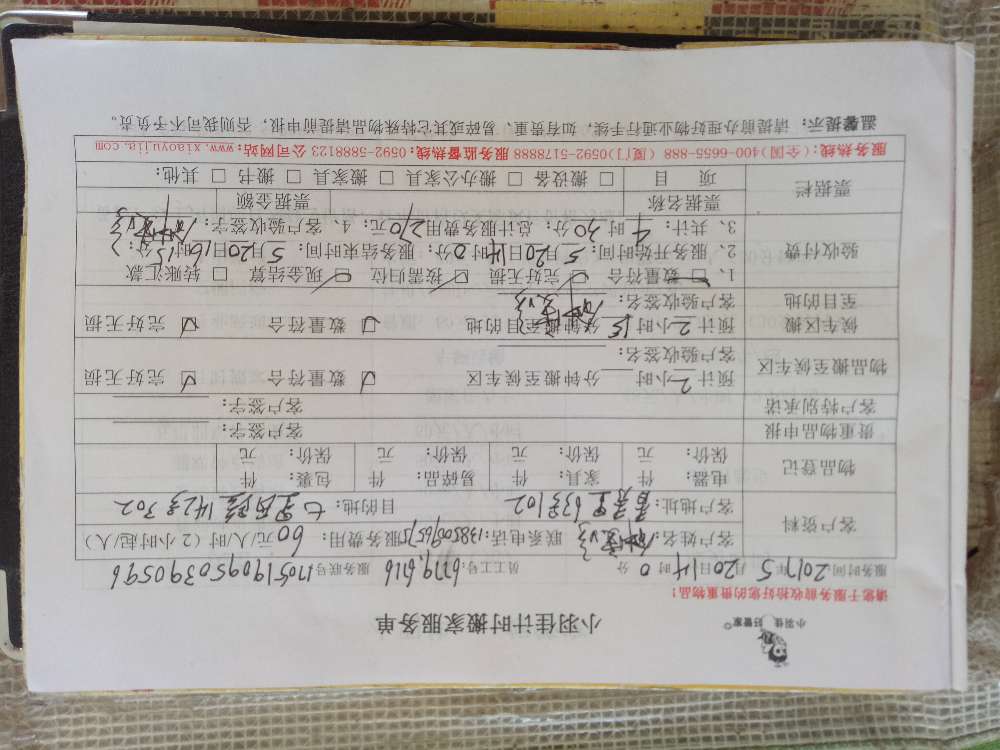 小羽佳 好管家
小羽佳计时搬家服务单
请您于服务前收拾好您的贵重物品！
服务时间：2017年5月20日14时0分 员工工号：6779,6716 服务联号：170519095039 0596
客户资料
客户姓名： 联系电话：13850965757 服务费用：60元/人/时（2小时/起/人）
客户地址：香秀里63号102 目的地：七星西路142号302
物品登记
电器： 件 家具： 件 易碎品： 件 包裹： 件
保价： 元 保价： 元 保价： 元 保价： 元
贵重物品申报 客户签字：
客户特别承诺 客户签字：
物品搬至候车区
预计2小时 分钟搬至候车区 数量符合 完好无损
客户验收签名：
候车区搬至目的地
预计2小时15分钟搬至目的地 数量符合 完好无损
客户验收签名：
验收付费
1、数量符合 完好无损 按需归位 现金结算 转账汇款
2、服务开始时间：5月20日14时0分；服务结束时间：5月20日16时15分；
3、共计：4时30分；总计服务费用270元；4、客户验收签字：
票据栏
票据名称 票据金额
项目 搬设备 搬办公家具 搬家具 搬书 其他：
服务热线：(全国)400-6655-888 (厦门)0592-5178888 服务监督热线：0592-5888123 公司网站：www.xiaoyujia.com
温馨提示：请提前办理好物业通行手续，如有贵重、易碎或其它特殊物品请提前申报，否则我司不予负责。